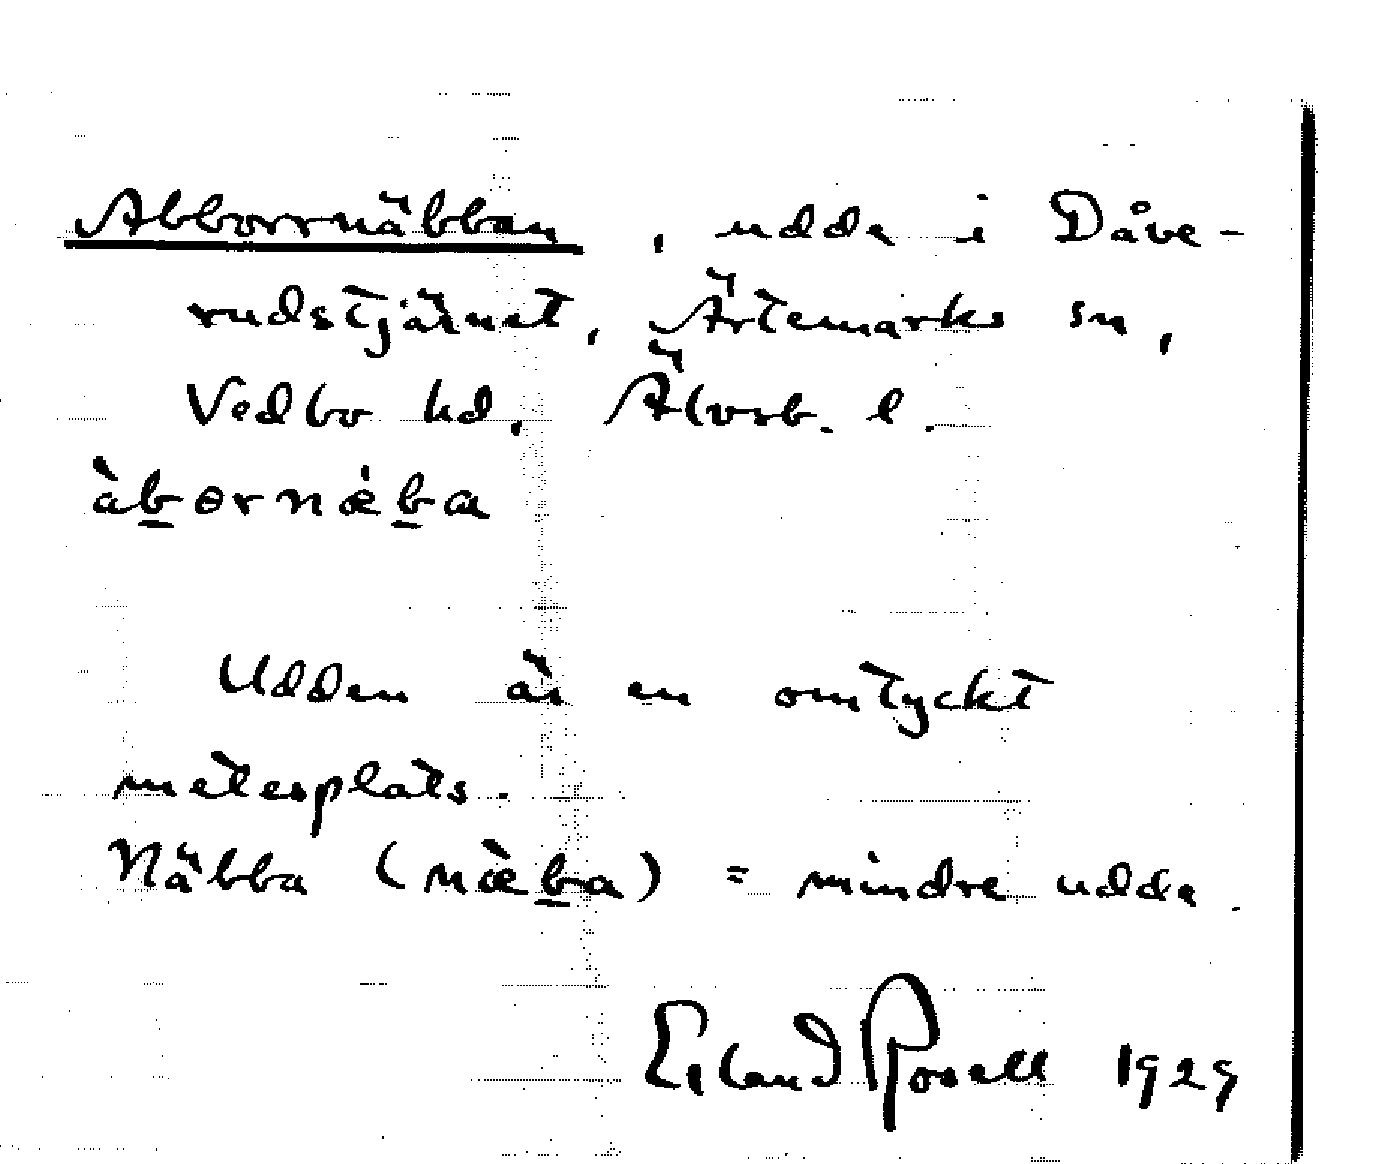 Abborrnäbban, udda i Dåve-
rudstjärnet, Ärtemarks sn,
Vedbo hd, Älvsb. l.
àb̲ɵrnæ̇b̲a
Udden är en omtyckt
metesplats.
Näbba (næ̀b̲a) = mindre udda.
Erland Rosell 1929